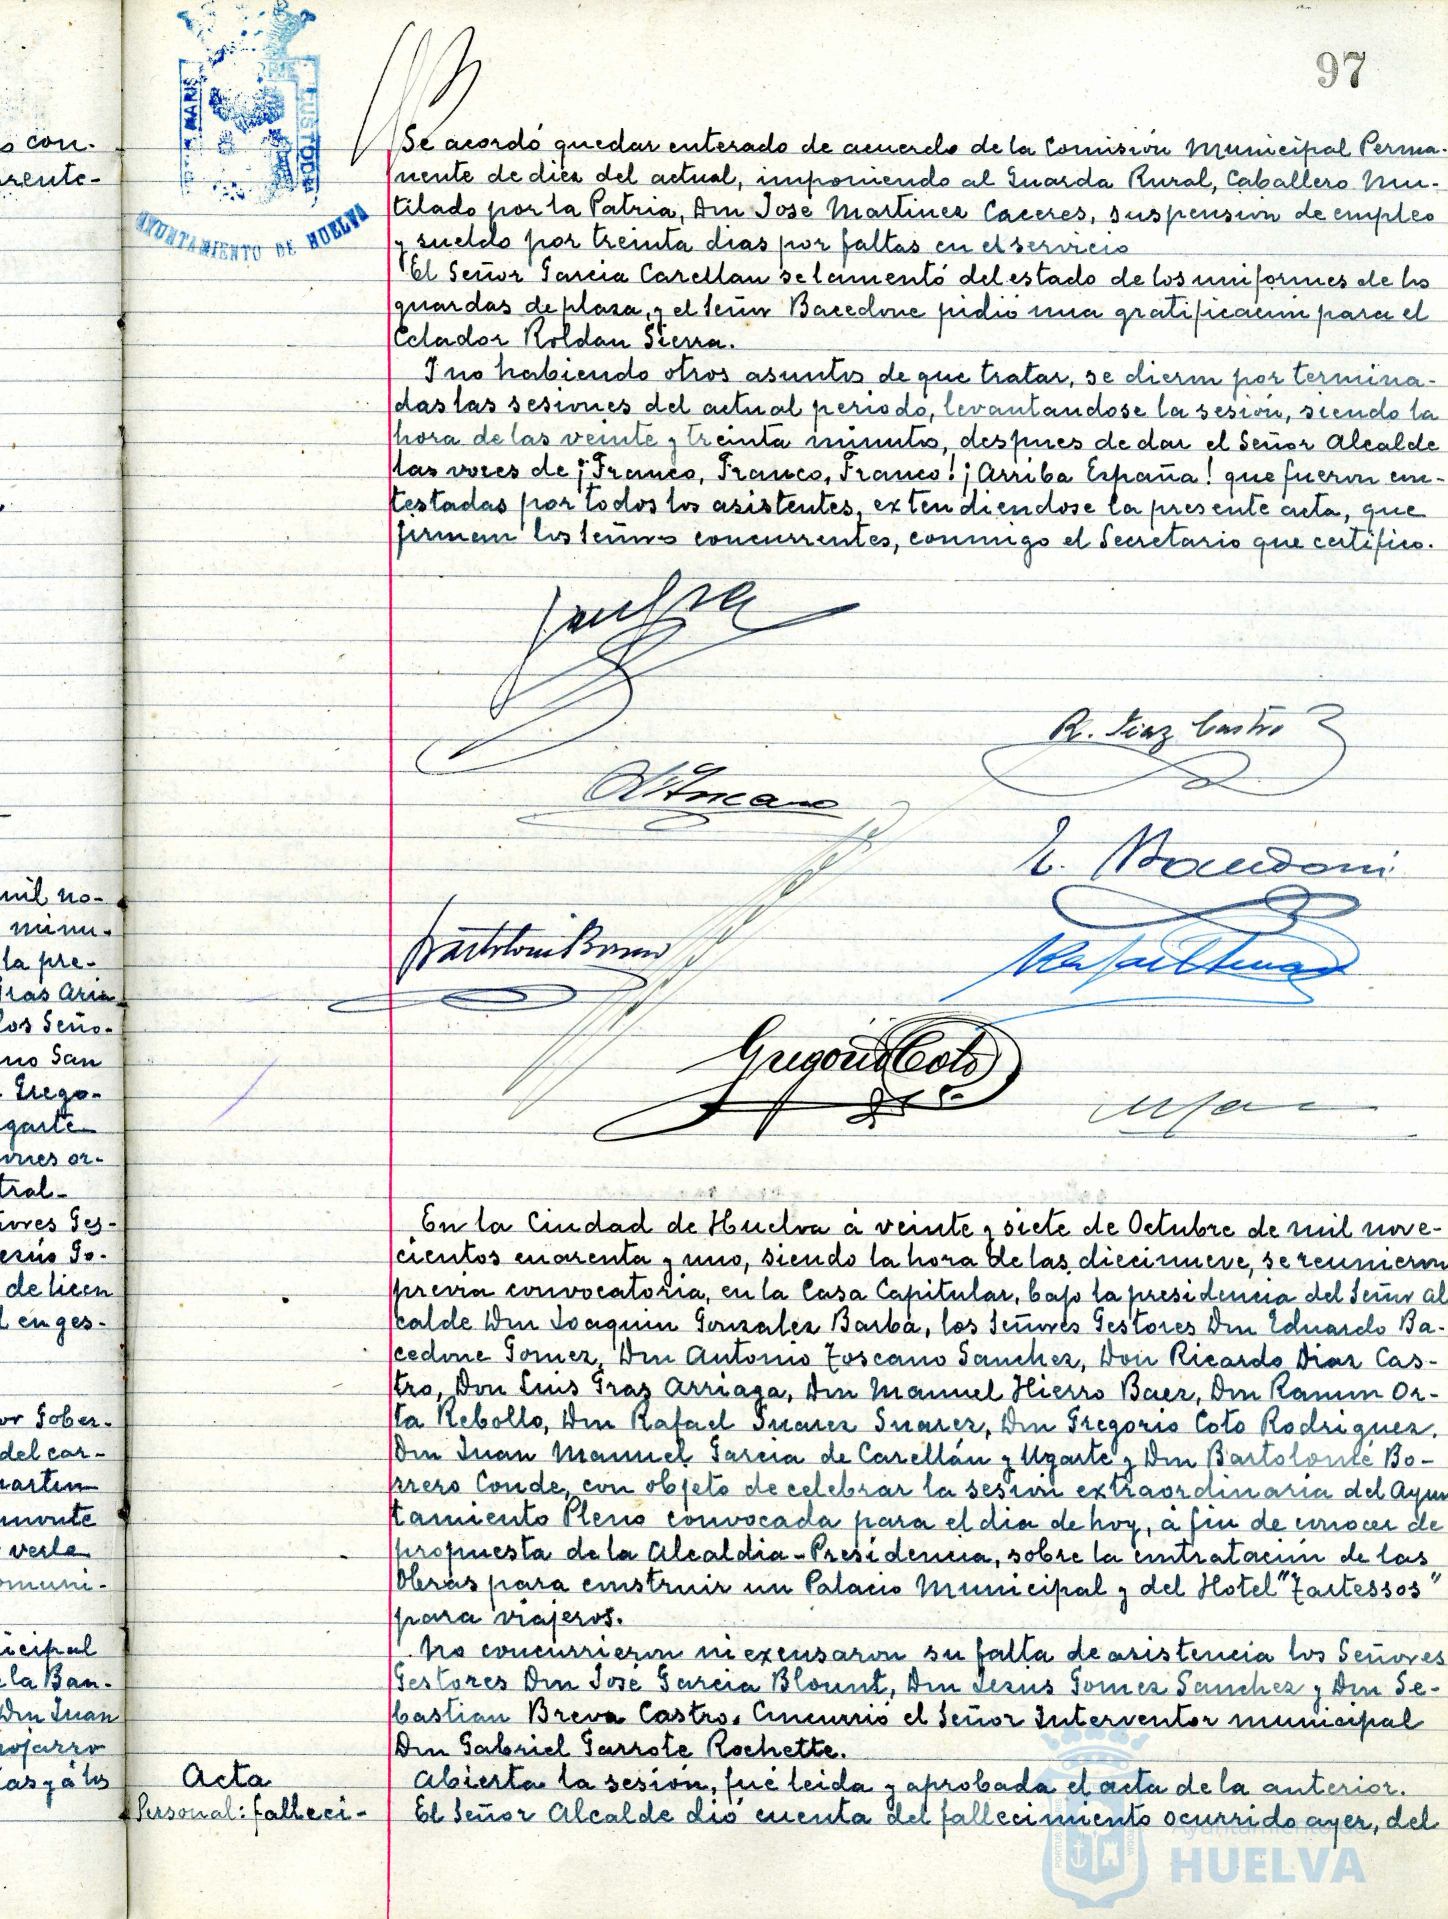 97
AYUNTAMIENTO DE HUELVA
Se acordó quedar enterado de acuerdo de la Comisión Municipal Perma-
nente de diez del actual, imponiendo al Guarda Rural, Caballero Mu-
tilado por la Patria, Don Jose Martinez Caceres, suspension de empleo
y sueldo por treinta dias por faltas en el servicio
El Señor Garcia Carellan se lamentó del estado de los uniformes de los
guardas de plaza, y el Señor Bacedone pidió una gratificacion para el
Celador Roldan Sierra.
Y no habiendo otros asuntos de que tratar, se dieron por termina-
das las sesiones del actual periodo, levantandose la sesión, siendo la
hora de las veinte y treinta minutos, despues de dar el Señor Alcalde
las voces de ¡Franco, Franco, Franco! ¡Arriba España! que fueron con-
testadas por todos los asistentes, extendiendose la presente acta, que
firman los Señores concurrentes, conmigo el Secretario que certifico.
R. Diaz Castro
A. Toscano
E. Bacedoni
Bartolomé Borrero
Rafael Suarez
Gregorio Coto
En la Ciudad de Huelva á veinte y siete de Octubre de mil nove-
cientos cuarenta y uno, siendo la hora de las diecinueve, se reunieron
previa convocatoria, en la Casa Capitular, bajo la presidencia del Señor Al
calde Don Joaquin Gonzalez Barba, los Señores Gestores Don Eduardo Ba-
cedone Gomez, Don Antonio Toscano Sanchez, Don Ricardo Diaz Cas-
tro, Don Luis Gras Arriaga, Don Manuel Hierro Baez, Don Ramon Or-
ta Rebollo, Don Rafael Suarez Suarez, Don Gregorio Coto Rodriguez,
Don Juan Manuel Garcia de Carellán y Ugarte y Don Bartolomé Bo-
rrero Conde, con objeto de celebrar la sesión extraordinaria del Ayun
tamiento Pleno convocada para el dia de hoy, á fin de conocer de
propuesta de la Alcaldia-Presidencia, sobre la contratacion de las
Obras para construir un Palacio Municipal y del Hotel "Tartessos"
para viajeros.
No concurrieron ni excusaron su falta de asistencia los Señores
Gestores Don José Garcia Blount, Don Jesus Gomez Sanchez y Don Se-
bastian Breva Castro. Concurrió el Señor Interventor municipal
Don Gabriel Garrote Rochette.
Acta
Abierta la sesión, fué leida y aprobada el acta de la anterior.
Personal: falleci-
El Señor Alcalde dió cuenta del fallecimiento ocurrido ayer, del
Ayuntamiento
HUELVA